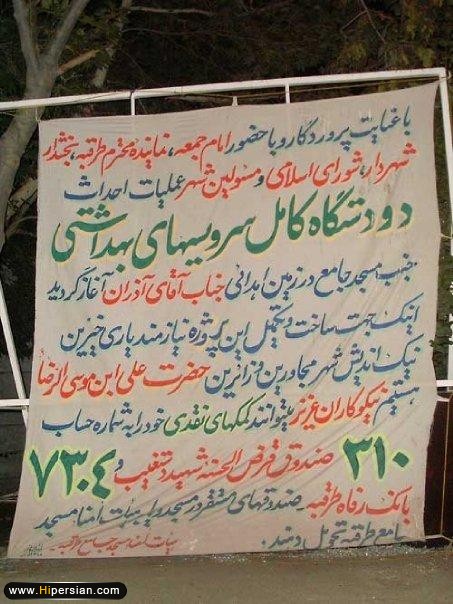 با عنایت پروردگار و با حضور امام جمعه، نماینده محترم طرقبه، بخشدار
شهردار، شورای اسلامی و مسئولین شهر عملیات احداث
دو دستگاه کامل سرویسهای بهداشتی
جنب مسجد جامع در زمین اهدائی جناب آقای آذران آغاز گردید
اینک جهت ساخت و تکمیل این پروژه نیازمند یاری خیرین
نیک اندیش شهر مجاورین و زائرین حضرت علی ابن موسی الرضا
هستیم نیکوکاران عزیز میتوانند کمکهای نقدی خود را به شماره حساب
۳۱۰ صندوق قرض الحسنه شهید دستغیب و ۷۳۰۴
بانک رفاه طرقبه - صندوقهای مستقر در مسجد و یا هیئت امنا مسجد
جامع طرقبه تحویل دهند.
هیئت امنا مسجد جامع طرقبه
www.Hipersian.com